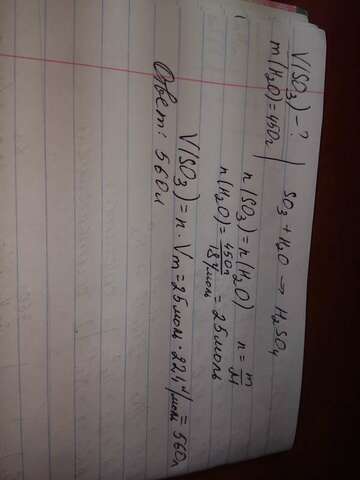 V(SO₃) - ?
m(H₂O) = 450г
SO₃ + H₂O → H₂SO₄
n(SO₃) = n(H₂O)   n = m/M
n(H₂O) = 450г / 18г/моль = 25моль
V(SO₃) = n · Vm = 25моль · 22,4 л/моль = 560л
Ответ: 560л